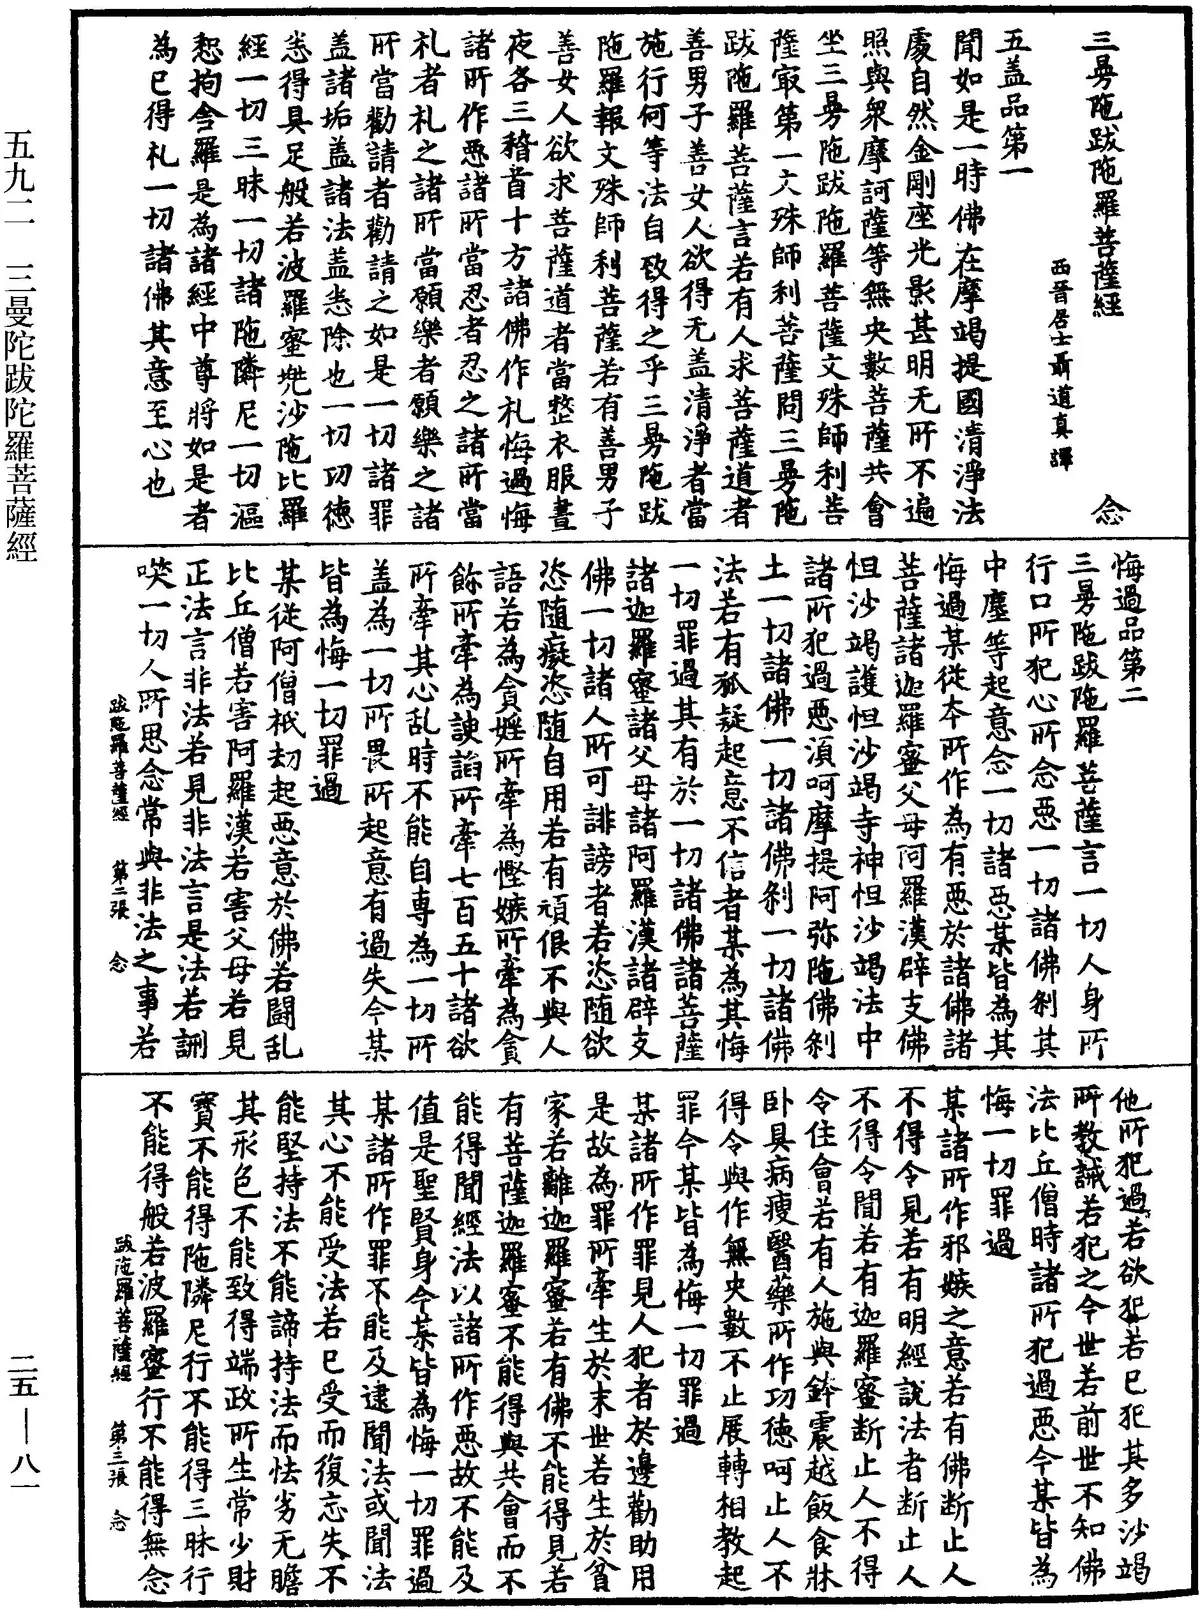 三曼陁跋陁羅菩薩經
西晉居士聶道真譯
念
五盖品第一
聞如是一時佛在摩竭提國清淨法
處自然金剛座光影甚明无所不遍
照與衆摩訶薩等無央數菩薩共會
坐三曼陁跋陁羅菩薩文殊師利菩
薩㝡第一文殊師利菩薩問三曼陁
跋陁羅菩薩言若有人求菩薩道者
善男子善女人欲得无盖清淨者當
施行何等法自致得之乎三曼陁跋
陁羅報文殊師利菩薩若有善男子
善女人欲求菩薩道者當整衣服晝
夜各三稽首十方諸佛作礼悔過悔
諸所作惡諸所當忍者忍之諸所當
礼者礼之諸所當願樂者願樂之諸
所當勸請者勸請之如是一切諸罪
盖諸垢盖諸法盖悉除也一切功德
悉得具足般若波羅蜜兜沙陁比羅
經一切三昧一切諸陁隣尼一切漚
惒拘舍羅是為諸經中尊將如是者
為已得礼一切諸佛其意至心也
悔過品第二
三曼陁跋陁羅菩薩言一切人身所
行口所犯心所念惡一切諸佛剎其
中塵等起意念一切諸惡某皆為其
悔過某從本所作為有惡於諸佛諸
菩薩諸迦羅蜜父母阿羅漢辟支佛
怛沙竭護怛沙竭寺神怛沙竭法中
諸所犯過惡湏呵摩提阿弥陁佛剎
土一切諸佛一切諸佛剎一切諸佛
法若有狐疑起意不信者某為其悔
一切罪過其有於一切諸佛諸菩薩
諸迦羅蜜諸父母諸阿羅漢諸辟支
佛一切諸人所可誹謗者若恣隨欲
恣隨癡恣隨自用若有頑佷不與人
語若為貪婬所牽為慳嫉所牽為貪
餘所牽為諛諂所牽七百五十諸欲
所牽其心乱時不能自專為一切所
盖為一切所畏所起意有過失今某
皆為悔一切罪過
某從阿僧祇劫起惡意於佛若鬪乱
比丘僧若害阿羅漢若害父母若見
正法言非法若見非法言是法若訓
唉一切人所思念常與非法之事若
跋陁羅菩薩經 第二張 念
他所犯過若欲犯若已犯其多沙竭
所教誡若犯之今世若前世不知佛
法比丘僧時諸所犯過惡今某皆為
悔一切罪過
某諸所作邪嫉之意若有佛断止人
不得令見若有明經說法者断止人
不得令聞若有迦羅蜜断止人不得
令住會若有人施與鉢震越飯食牀
卧具病瘦醫藥所作功德呵止人不
得令與作無央數不止展轉相教起
罪今某皆為悔一切罪過
某諸所作罪見人犯者於邊勸助用
是故為罪所牽生於末世若生於貧
家若離迦羅蜜若有佛不能得見若
有菩薩迦羅蜜不能得與共會而不
能得聞經法以諸所作惡故不能及
值是聖賢身今某皆為悔一切罪過
某諸所作罪不能及逮聞法或聞法
其心不能受法若已受而復忘失不
能堅持法不能諦持法而怯劣无膽
其形色不能致得端政所生常少財
寶不能得陁隣尼行不能得三昧行
不能得般若波羅蜜行不能得無念
跋陁羅菩薩經 第三張 念
五九二 三曼陀跋陀羅菩薩經
二五—八一